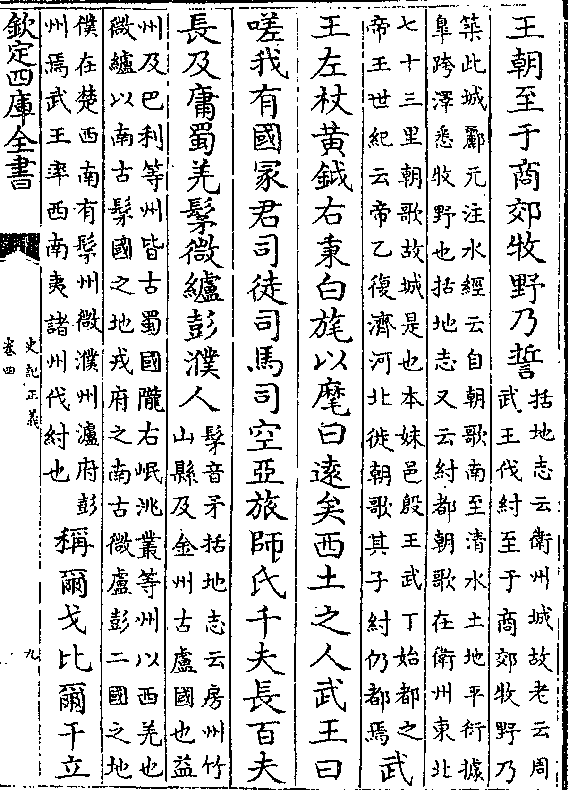 王朝至于商郊牧野乃誓
括地志云衛州城故老云周
武王伐紂至于商郊牧野乃
築此城酈元注水經云自朝歌南至清水土地平衍據
臯跨澤悉牧野也括地志又云紂都朝歌在衛州東北
七十三里朝歌故城是也本妹邑殷王武丁始都之
帝王世紀云帝乙復濟河北徙朝歌其子紂仍都焉
武
王左杖黄鉞右秉白旄以麾曰逺矣西土之人武王曰
嗟我有國冡君司徒司馬司空亞旅師氏千夫長百夫
長及庸蜀羌髳微纑彭濮人
髳音矛括地志云房州竹
山縣及金州古盧國也益
州及巴利等州皆古蜀國隴右岷洮叢等州以西羌也
微纑以南古髳國之地戎府之南古微盧彭二國之地
濮在楚西南有髳州微濮州瀘府彭
州焉武王率西南夷諸州伐紂也
稱爾戈比爾干立
欽定四庫全書
史記正義
卷四
九